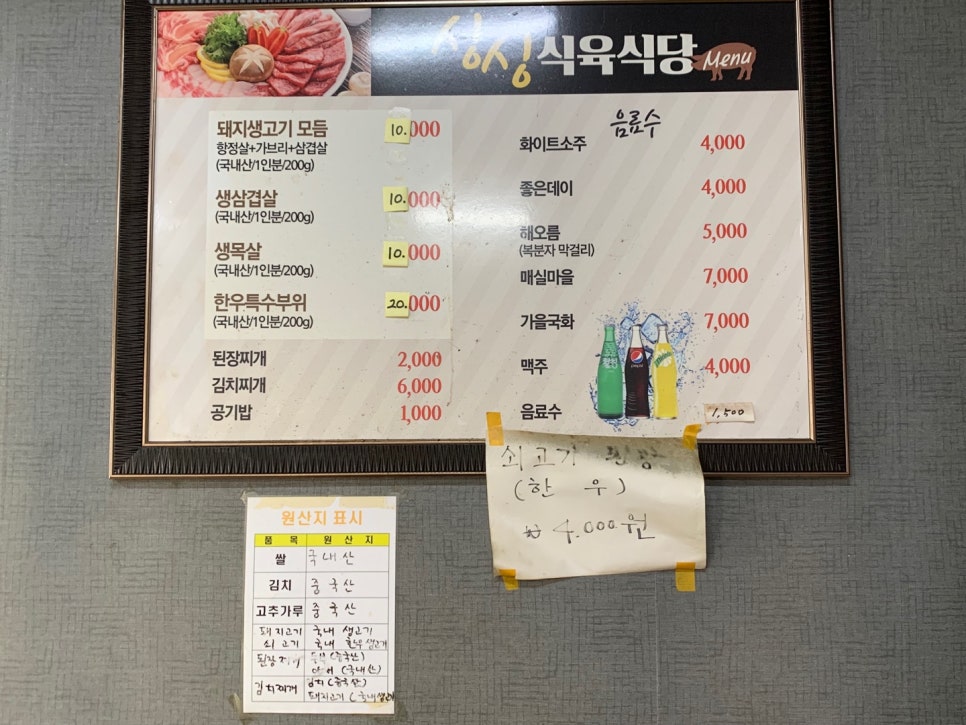 싱싱식육식당 Menu
돼지생고기 모듬 10.000
항정살+가브리+삼겹살
(국내산/1인분/200g)
생삼겹살 10.000
(국내산/1인분/200g)
생목살 10.000
(국내산/1인분/200g)
한우특수부위 20.000
(국내산/1인분/200g)
된장찌개 2,000
김치찌개 6,000
공기밥 1,000
음료수
화이트소주 4,000
좋은데이 4,000
해오름 5,000
(복분자 막걸리)
매실마을 7,000
가을국화 7,000
맥주 4,000
음료수 1,500
pepsi
쇠고기
(한우)
₩ 4.000원
원산지 표시
품목 원산지
쌀 국내산
김치 중국산
고추가루 중국산
돼지고기 국내 생고기
쇠고기 국내 한우생고기
된장찌개 (중국산)
(국내산)
김치찌개 김치(중국산)
돼지고기(국내생